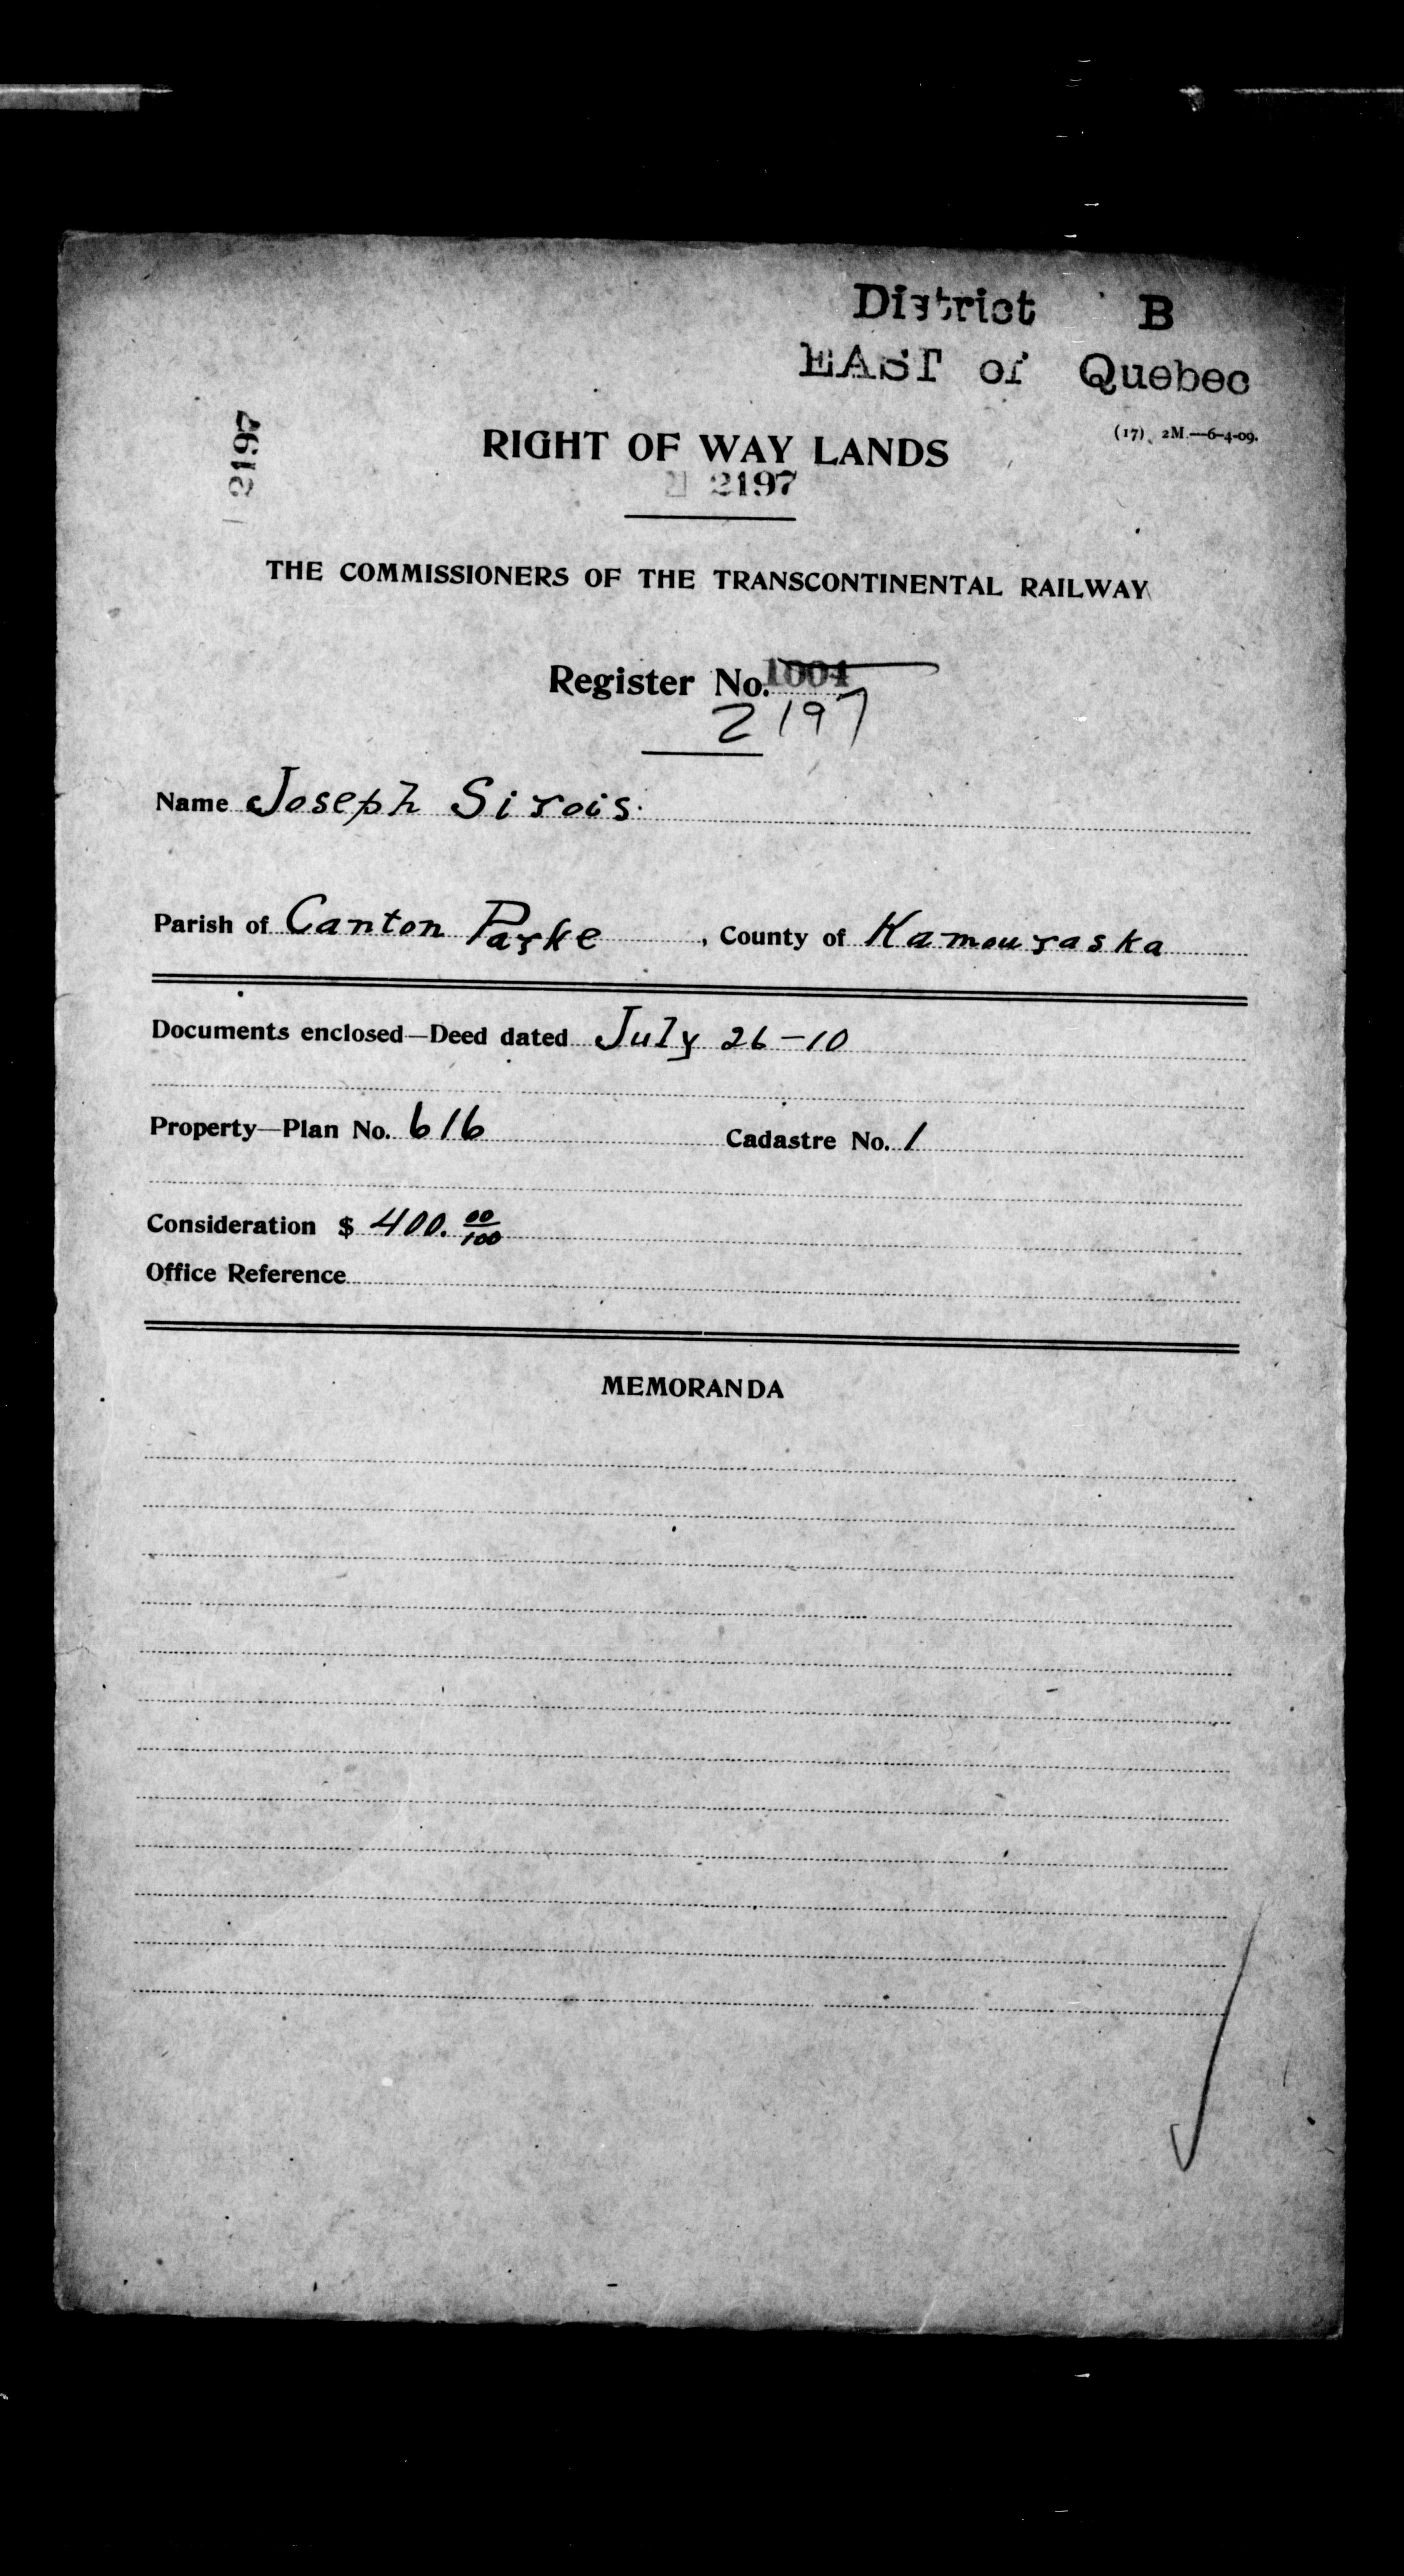 District B
EAST of Quebec
(17) 2M.—6-4-09.
2197
RIGHT OF WAY LANDS
2197
THE COMMISSIONERS OF THE TRANSCONTINENTAL RAILWAY
Register No. 1004
2197
Name Joseph Sirois.
Parish of Canton Parke, County of Kamouraska
Documents enclosed—Deed dated July 26-10
Property—Plan No. 616 Cadastre No. 1
Consideration $ 400. 00/100
Office Reference
MEMORANDA